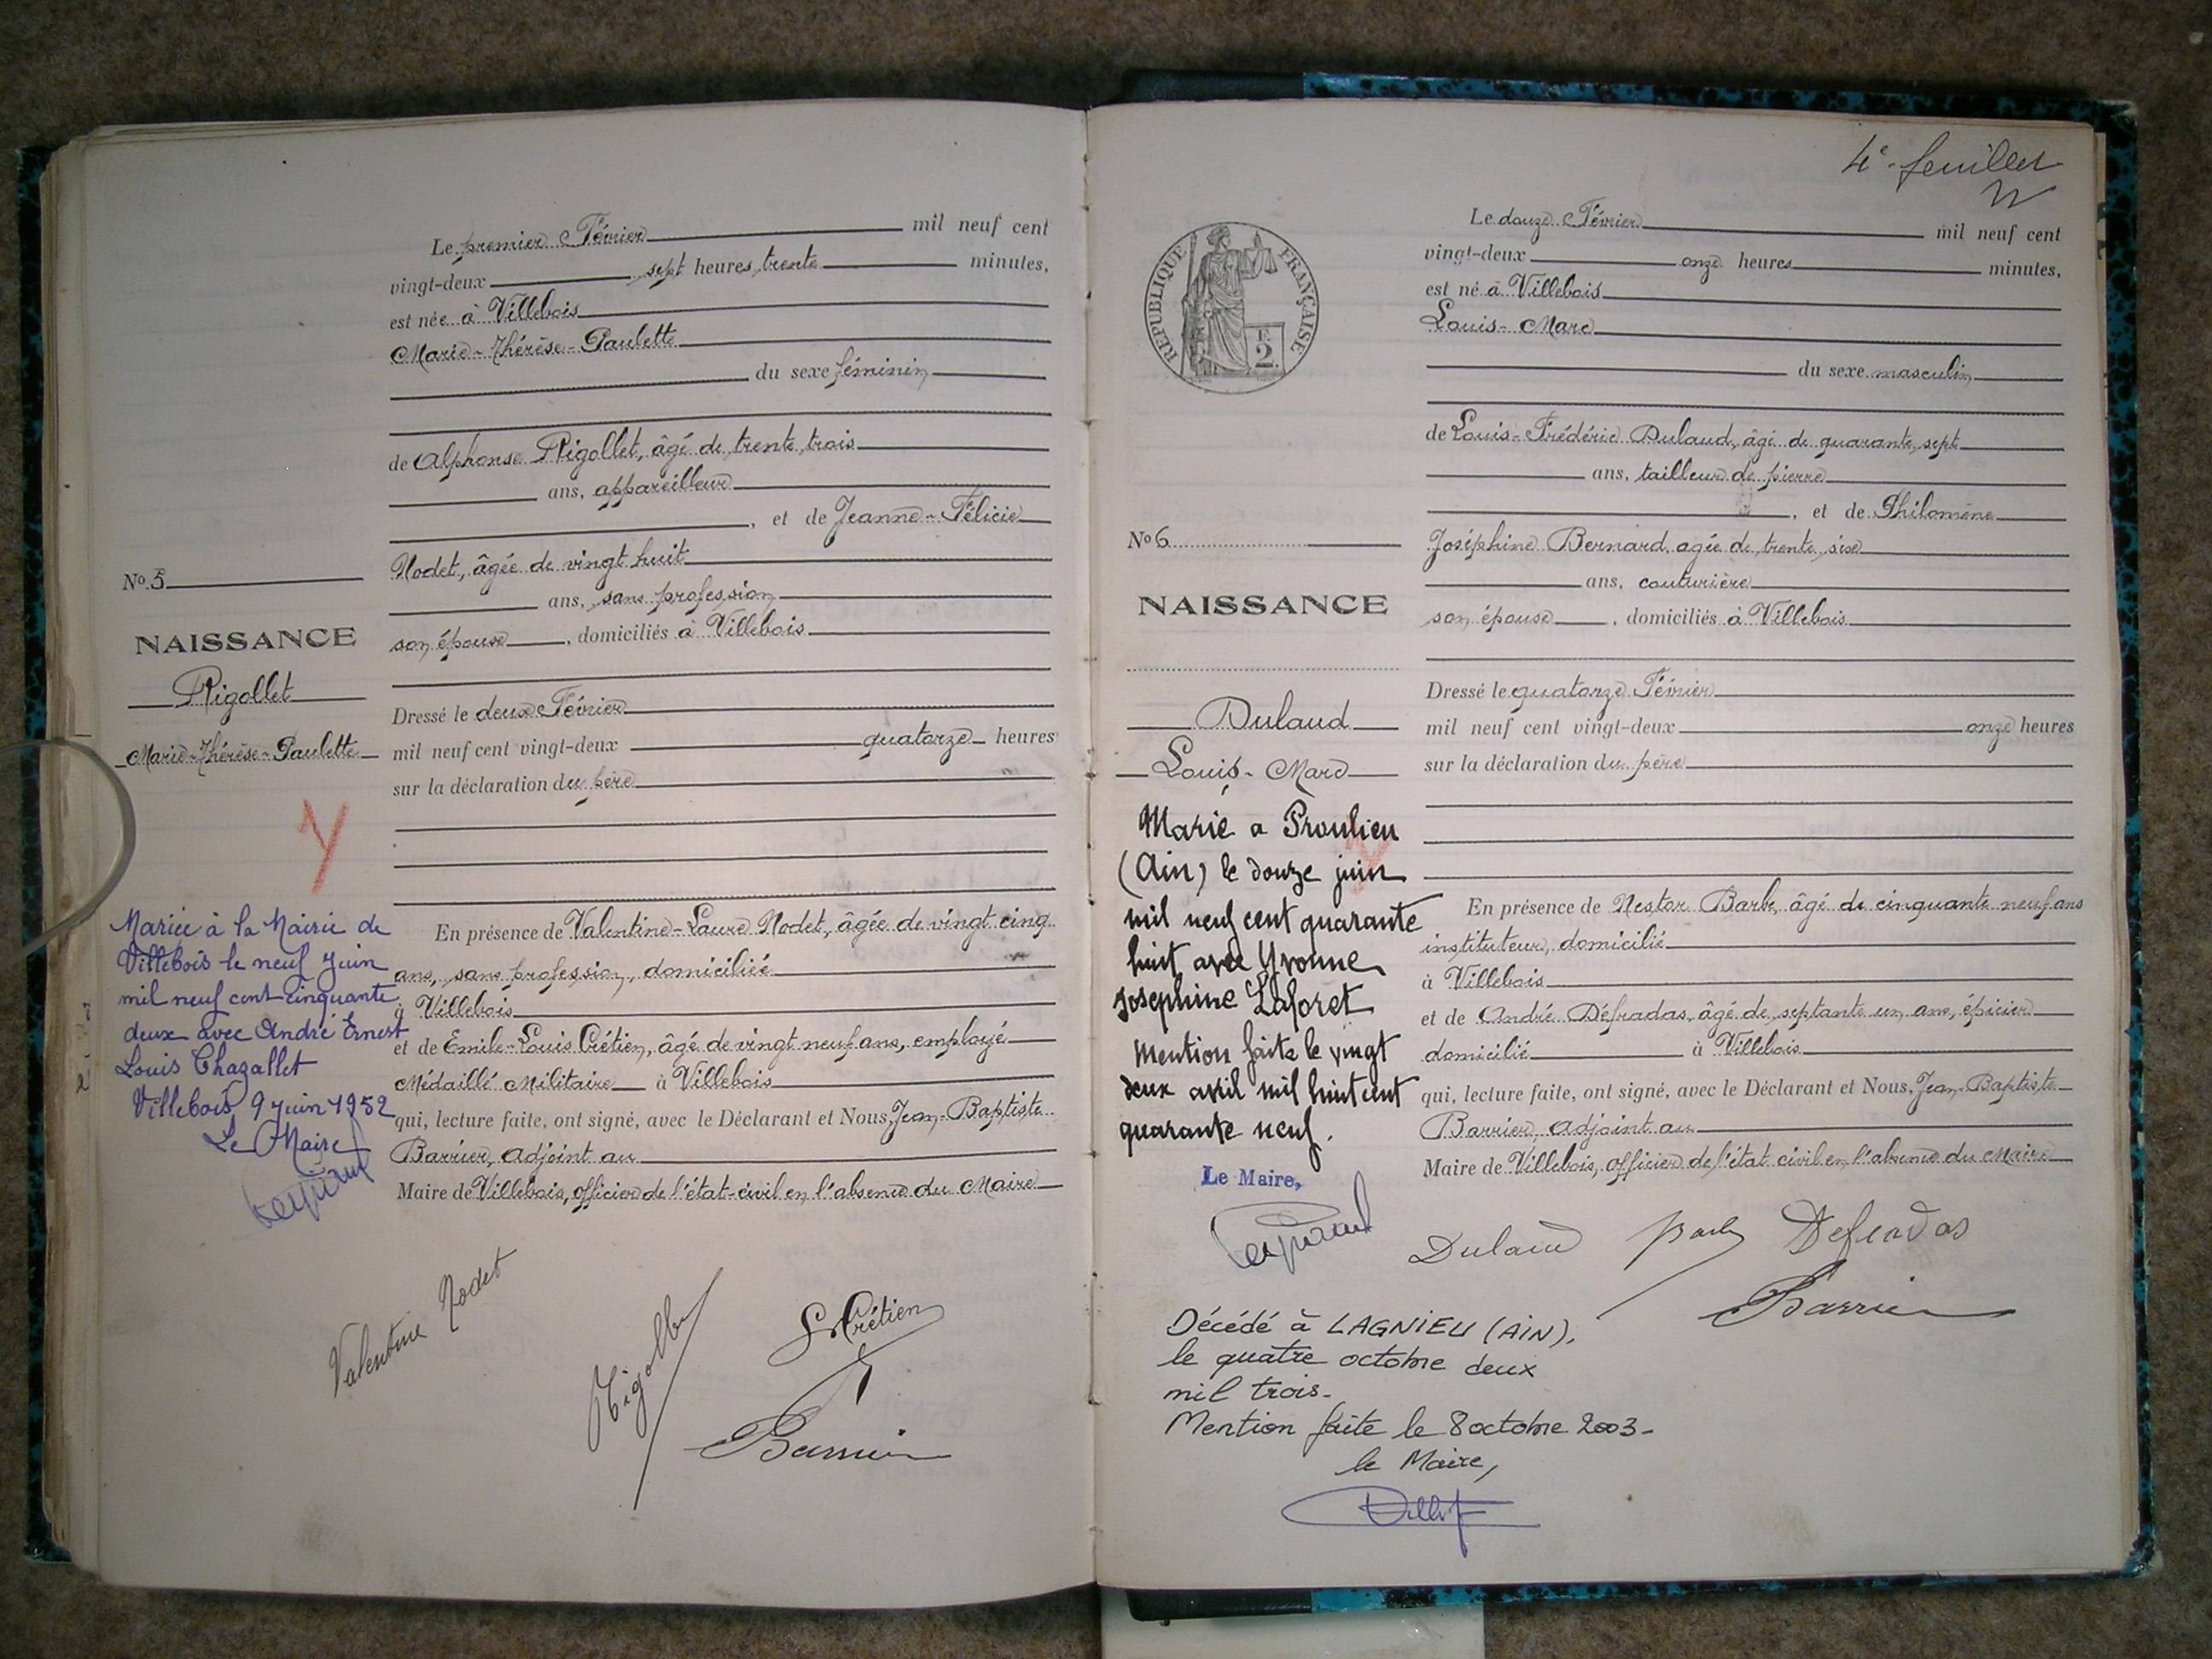 Le premier Février mil neuf cent
vingt-deux sept heures trente minutes,
est née à Villebois
Marie-Thérèse-Paulette
du sexe féminin
de Alphonse Rigollet, âgé de trente trois
ans, appareilleur
, et de Jeanne-Félicie
Nodet, âgée de vingt huit
ans, sans profession
son épouse, domiciliés à Villebois
Dressé le deux Février
mil neuf cent vingt-deux quatorze heures
sur la déclaration du père
En présence de Valentine-Laure Nodet, âgée de vingt cinq
ans, sans profession, domiciliée
à Villebois
et de Emile-Louis Crétien, âgé de vingt neuf ans, employé
Médaillé Militaire à Villebois
qui, lecture faite, ont signé, avec le Déclarant et Nous, Jean-Baptiste
Barrier, adjoint au
Maire de Villebois, officier de l'état-civil en l'absence du Maire
No 5
NAISSANCE
Rigollet
Marie-Thérèse-Paulette
Mariée à la Mairie de
Villebois le neuf juin
mil neuf cent cinquante
deux avec André Ernest
Louis Chazallet
Villebois 9 juin 1952
Le Maire
Valentine Nodet
Rigollet
Crétien
Barrier
4e feuillet
REPUBLIQUE FRANÇAISE
F.
2.
Le douze Février mil neuf cent
vingt-deux onze heures minutes,
est né à Villebois
Louis-Marc
du sexe masculin
de Louis-Frédéric Dulaud, âgé de quarante sept
ans, tailleur de pierre
, et de Philomène
Joséphine Bernard, agée de trente six
ans, couturière
son épouse, domiciliés à Villebois
Dressé le quatorze Février
mil neuf cent vingt-deux onze heures
sur la déclaration du père
En présence de Nestor Barbe, âgé de cinquante neuf ans
instituteur, domicilié
à Villebois
et de André Défradas, âgé de septante un ans, épicier
domicilié à Villebois
qui, lecture faite, ont signé, avec le Déclarant et Nous, Jean-Baptiste
Barrier, adjoint au
Maire de Villebois, officier de l'état civil en l'absence du Maire
No 6
NAISSANCE
Dulaud
Louis-Marc
Marié a Proulieu
(Ain) le douze juin
mil neuf cent quarante
huit avec Yvonne
Josephine Laforet
Mention faite le vingt
deux avril mil huit cent
quarante neuf.
Le Maire,
Dulaud Barbe Defradas
Barrier
Décédé à LAGNIEU (AIN),
le quatre octobre deux
mil trois-
Mention faite le 8 octobre 2003-
le Maire,